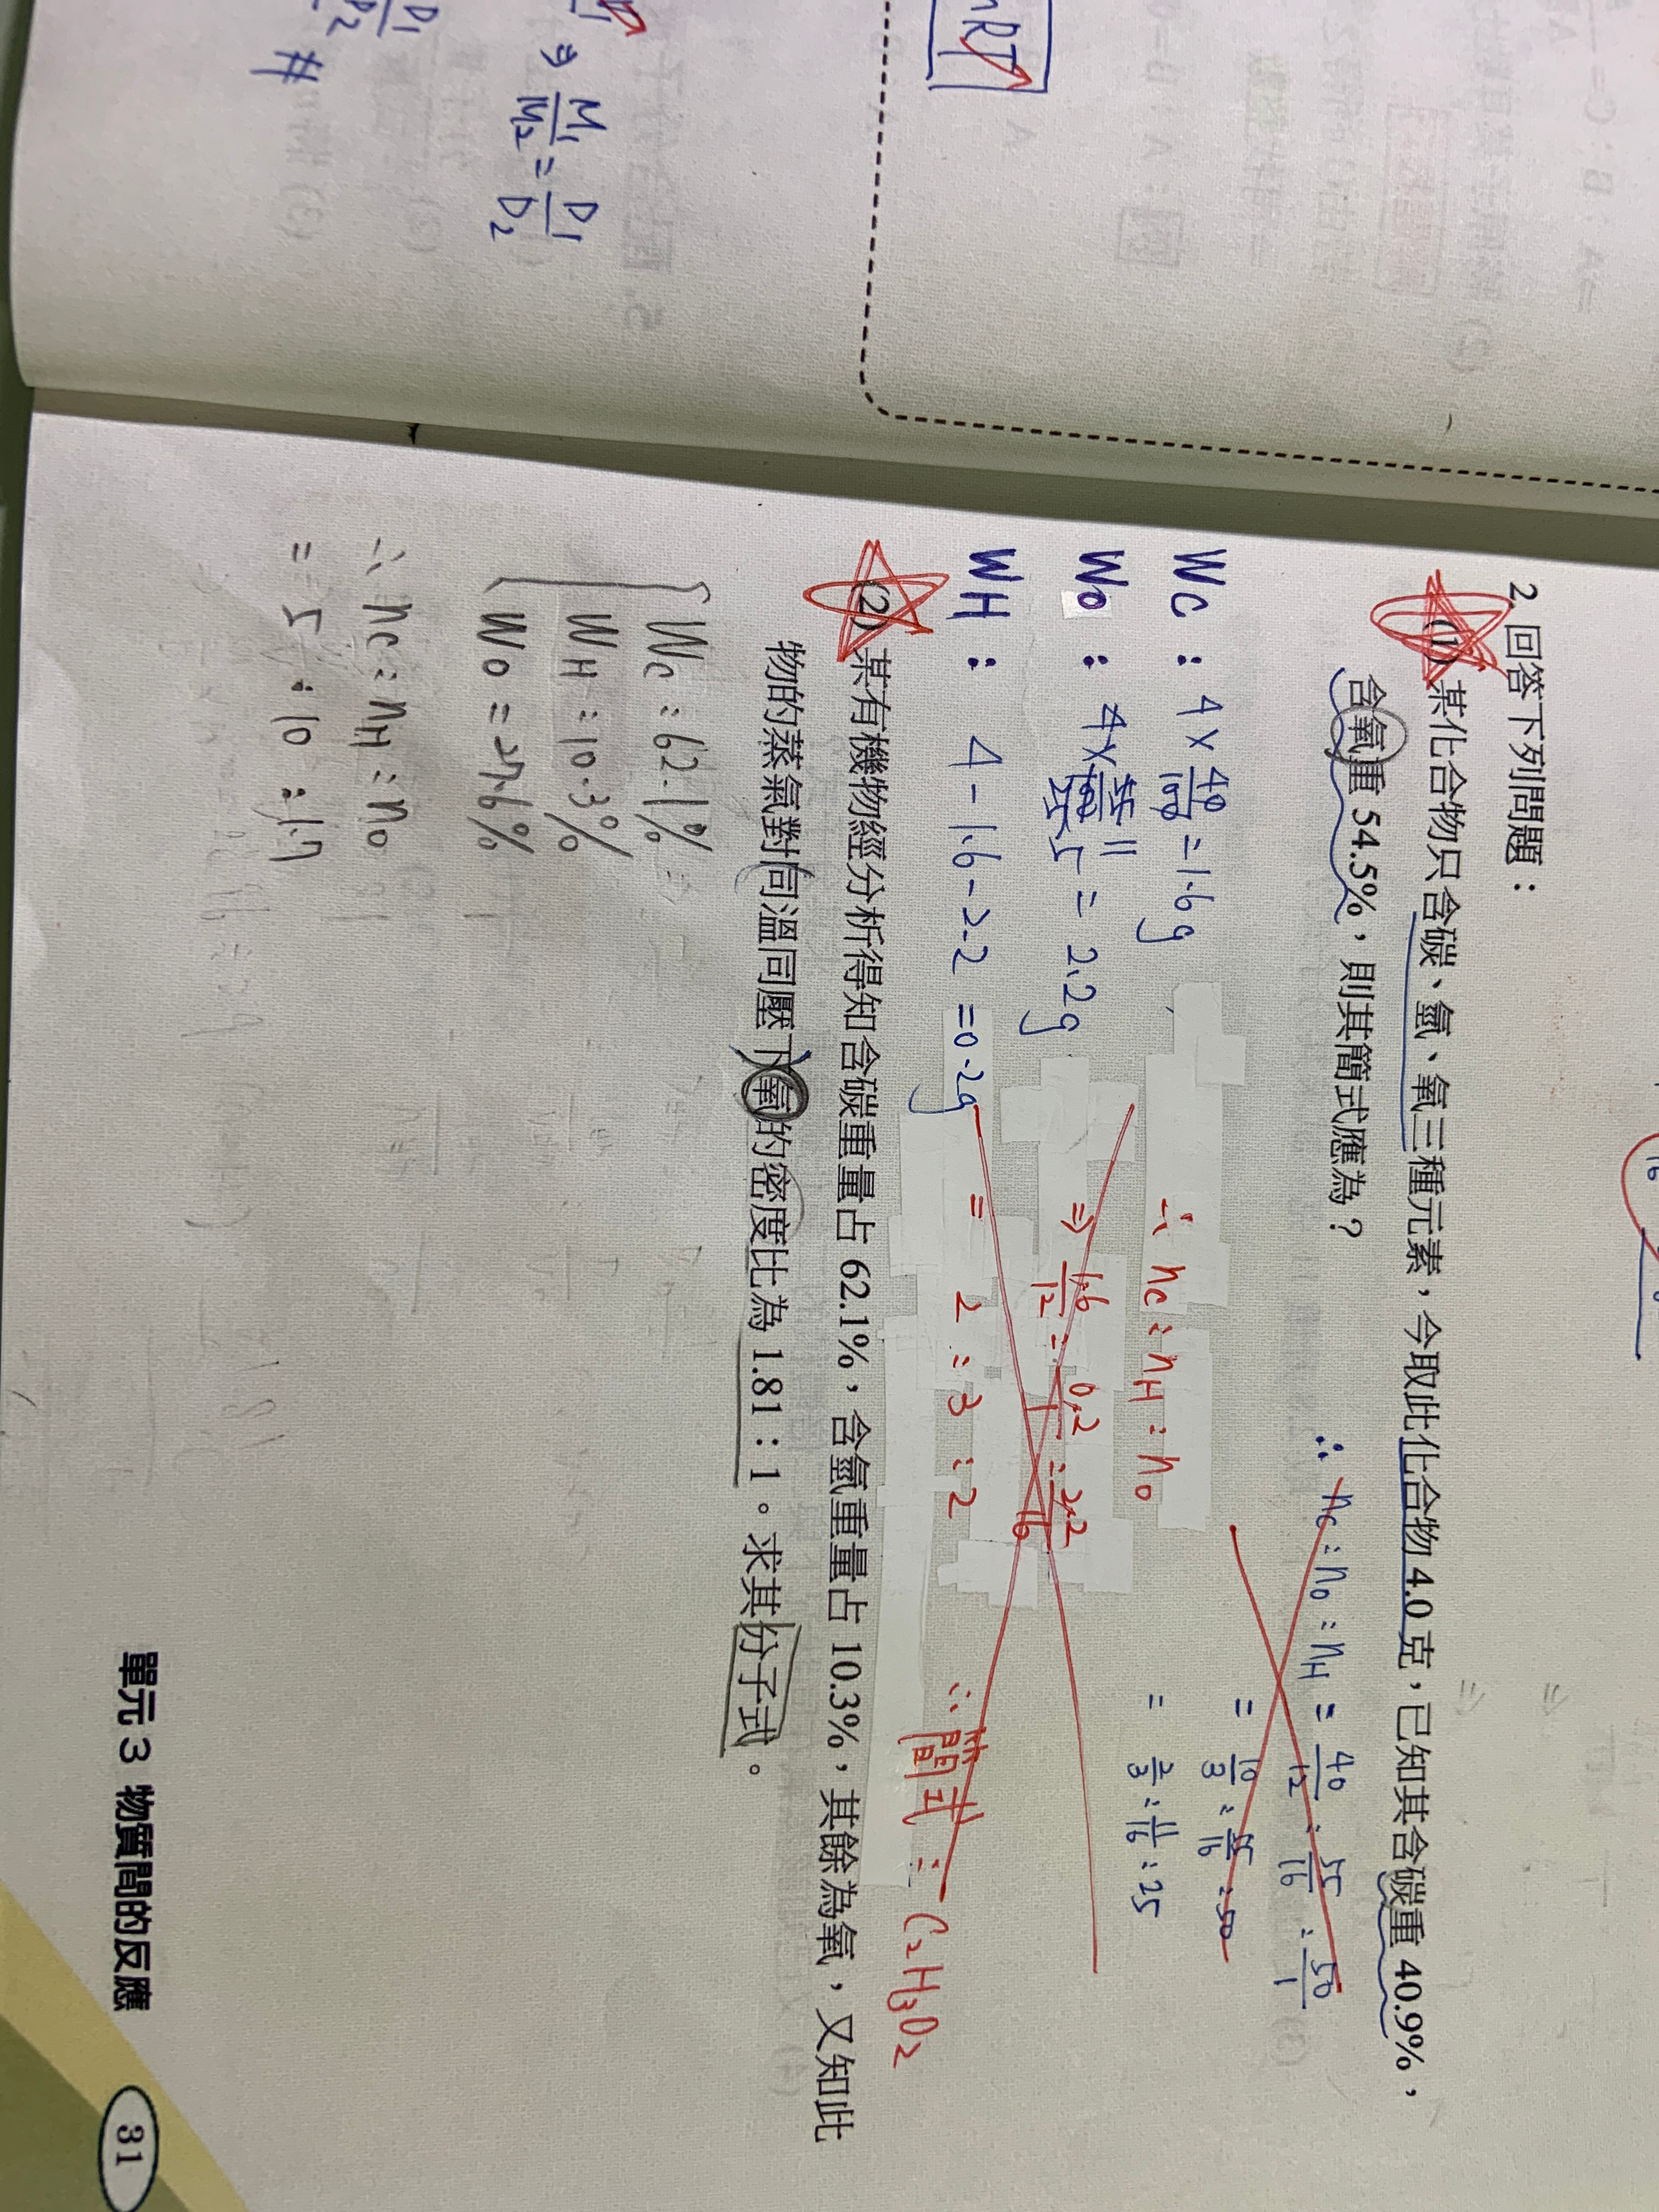 nRT
⇒ M₁/M₂ = D₁/D₂
D₁
D₂
#
2. 回答下列問題：
(1) 某化合物只含碳、氫、氧三種元素，今取此化合物 4.0 克，已知其含碳重 40.9%，
含氧重 54.5%，則其簡式應為？
∴ nc : no : nH = 40/12 : 55/16 : 50/1
= 10/3 : 55/16 : 50
= 2/3 : 11/16 : 25
Wc : 4 × 40/100 = 1.6g
Wo : 4 × 55/100 = 2.2g
WH : 4 - 1.6 - 2.2 = 0.2g
∴ nc : nH : no
⇒ 1.6/12 : 0.2/1 : 2.2/16
= 2 : 3 : 2
∴ 簡式 = C₂H₃O₂
(2) 某有機物經分析得知含碳重量占 62.1%，含氫重量占 10.3%，其餘為氧，又知此
物的蒸氣對同溫同壓下氧的密度比為 1.81：1。求其分子式。
Wc : 62.1%
WH : 10.3%
Wo = 27.6%
∴ nc : nH : no
= 5 : 10 : 1.7
單元 3 物質間的反應
31